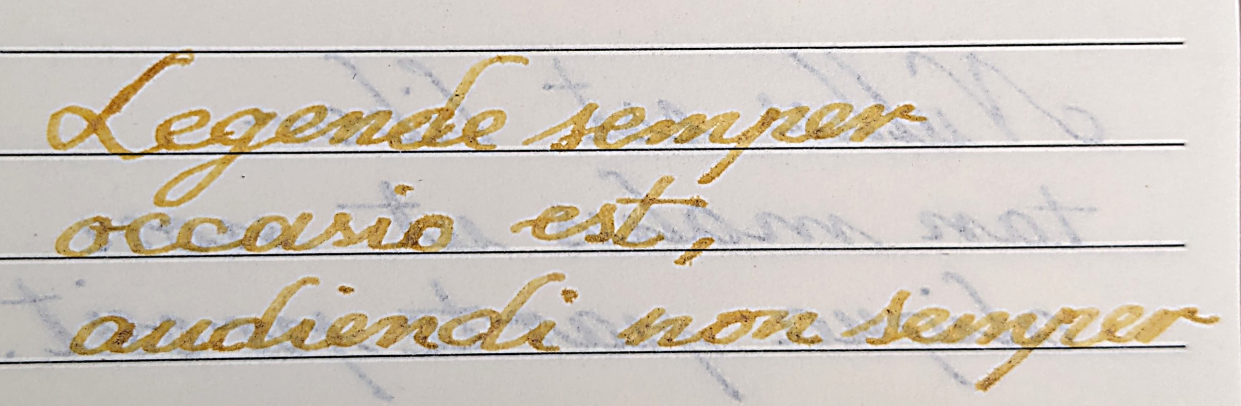 Legende semper
occasio est,
audiendi non semper